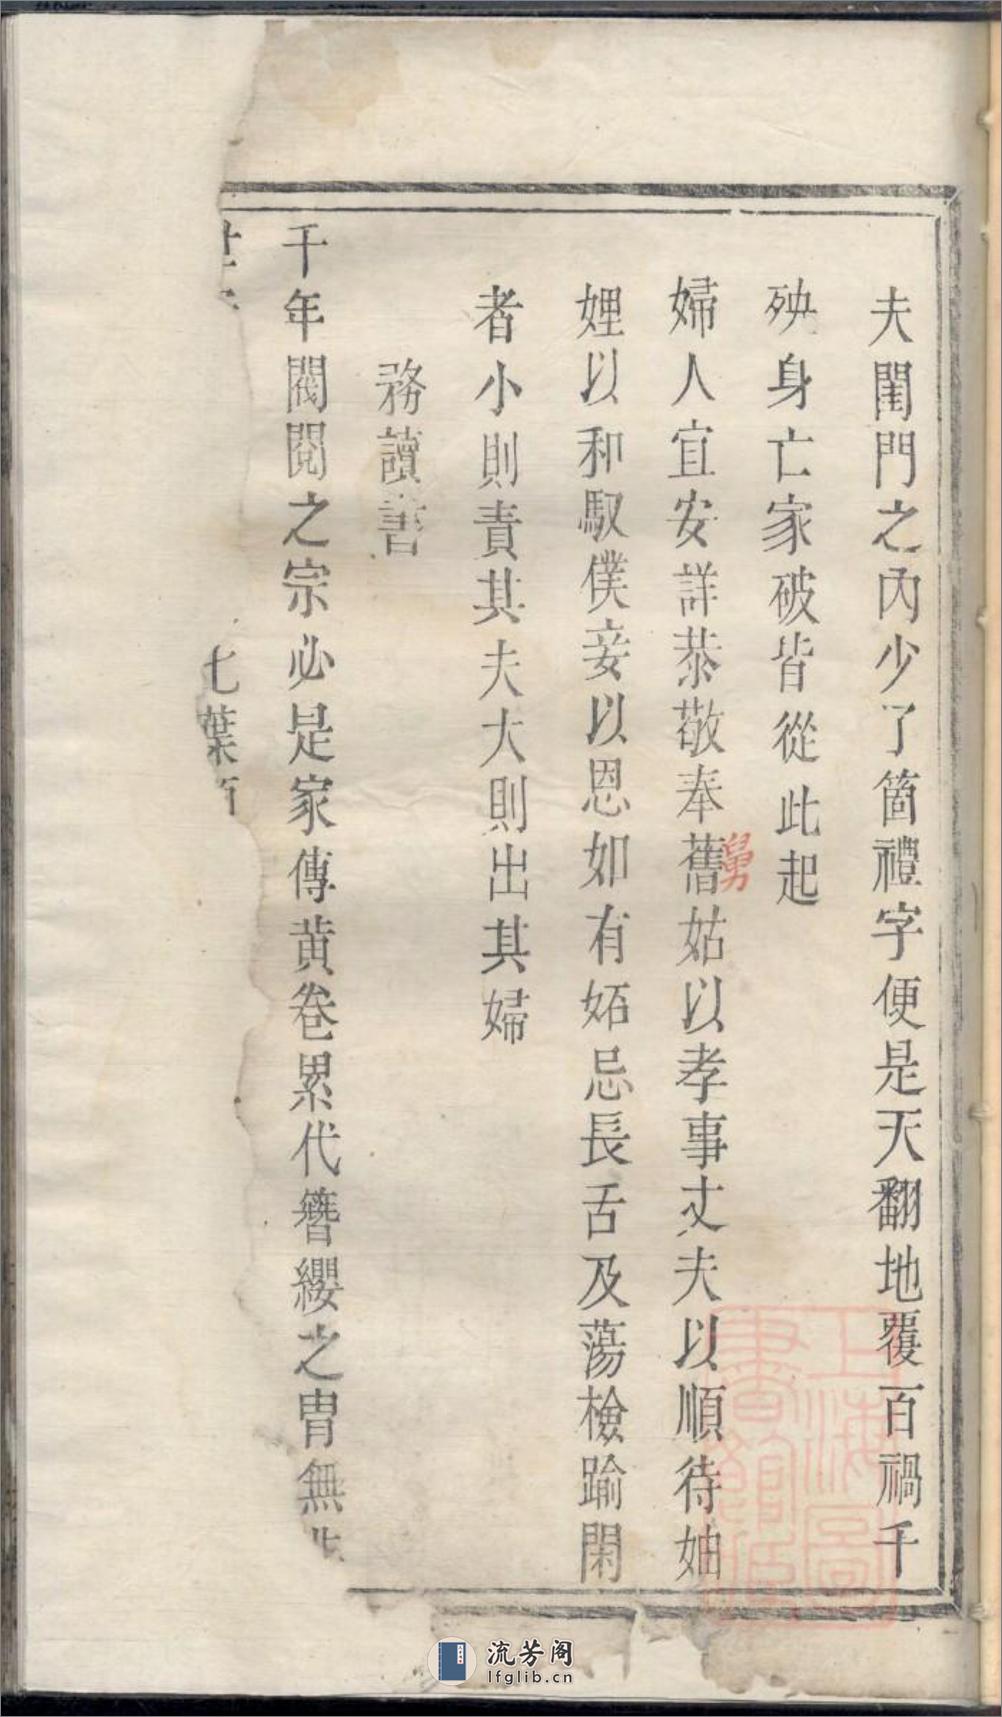 夫閨門之內少了箇禮字便是天翻地覆百禍千
殃身亡家破皆從此起
婦人宜安詳恭敬奉舊姑以孝事丈夫以順待妯
舅
娌以和馭僕妾以恩如有妬忌長舌及蕩檢踰閑
者小則責其夫大則出其婦
務讀書
千年閥閱之宗必是家傳黃卷累代簪纓之胄無
七葉
上海圖
書館藏
流芳阁
lfglib.cn